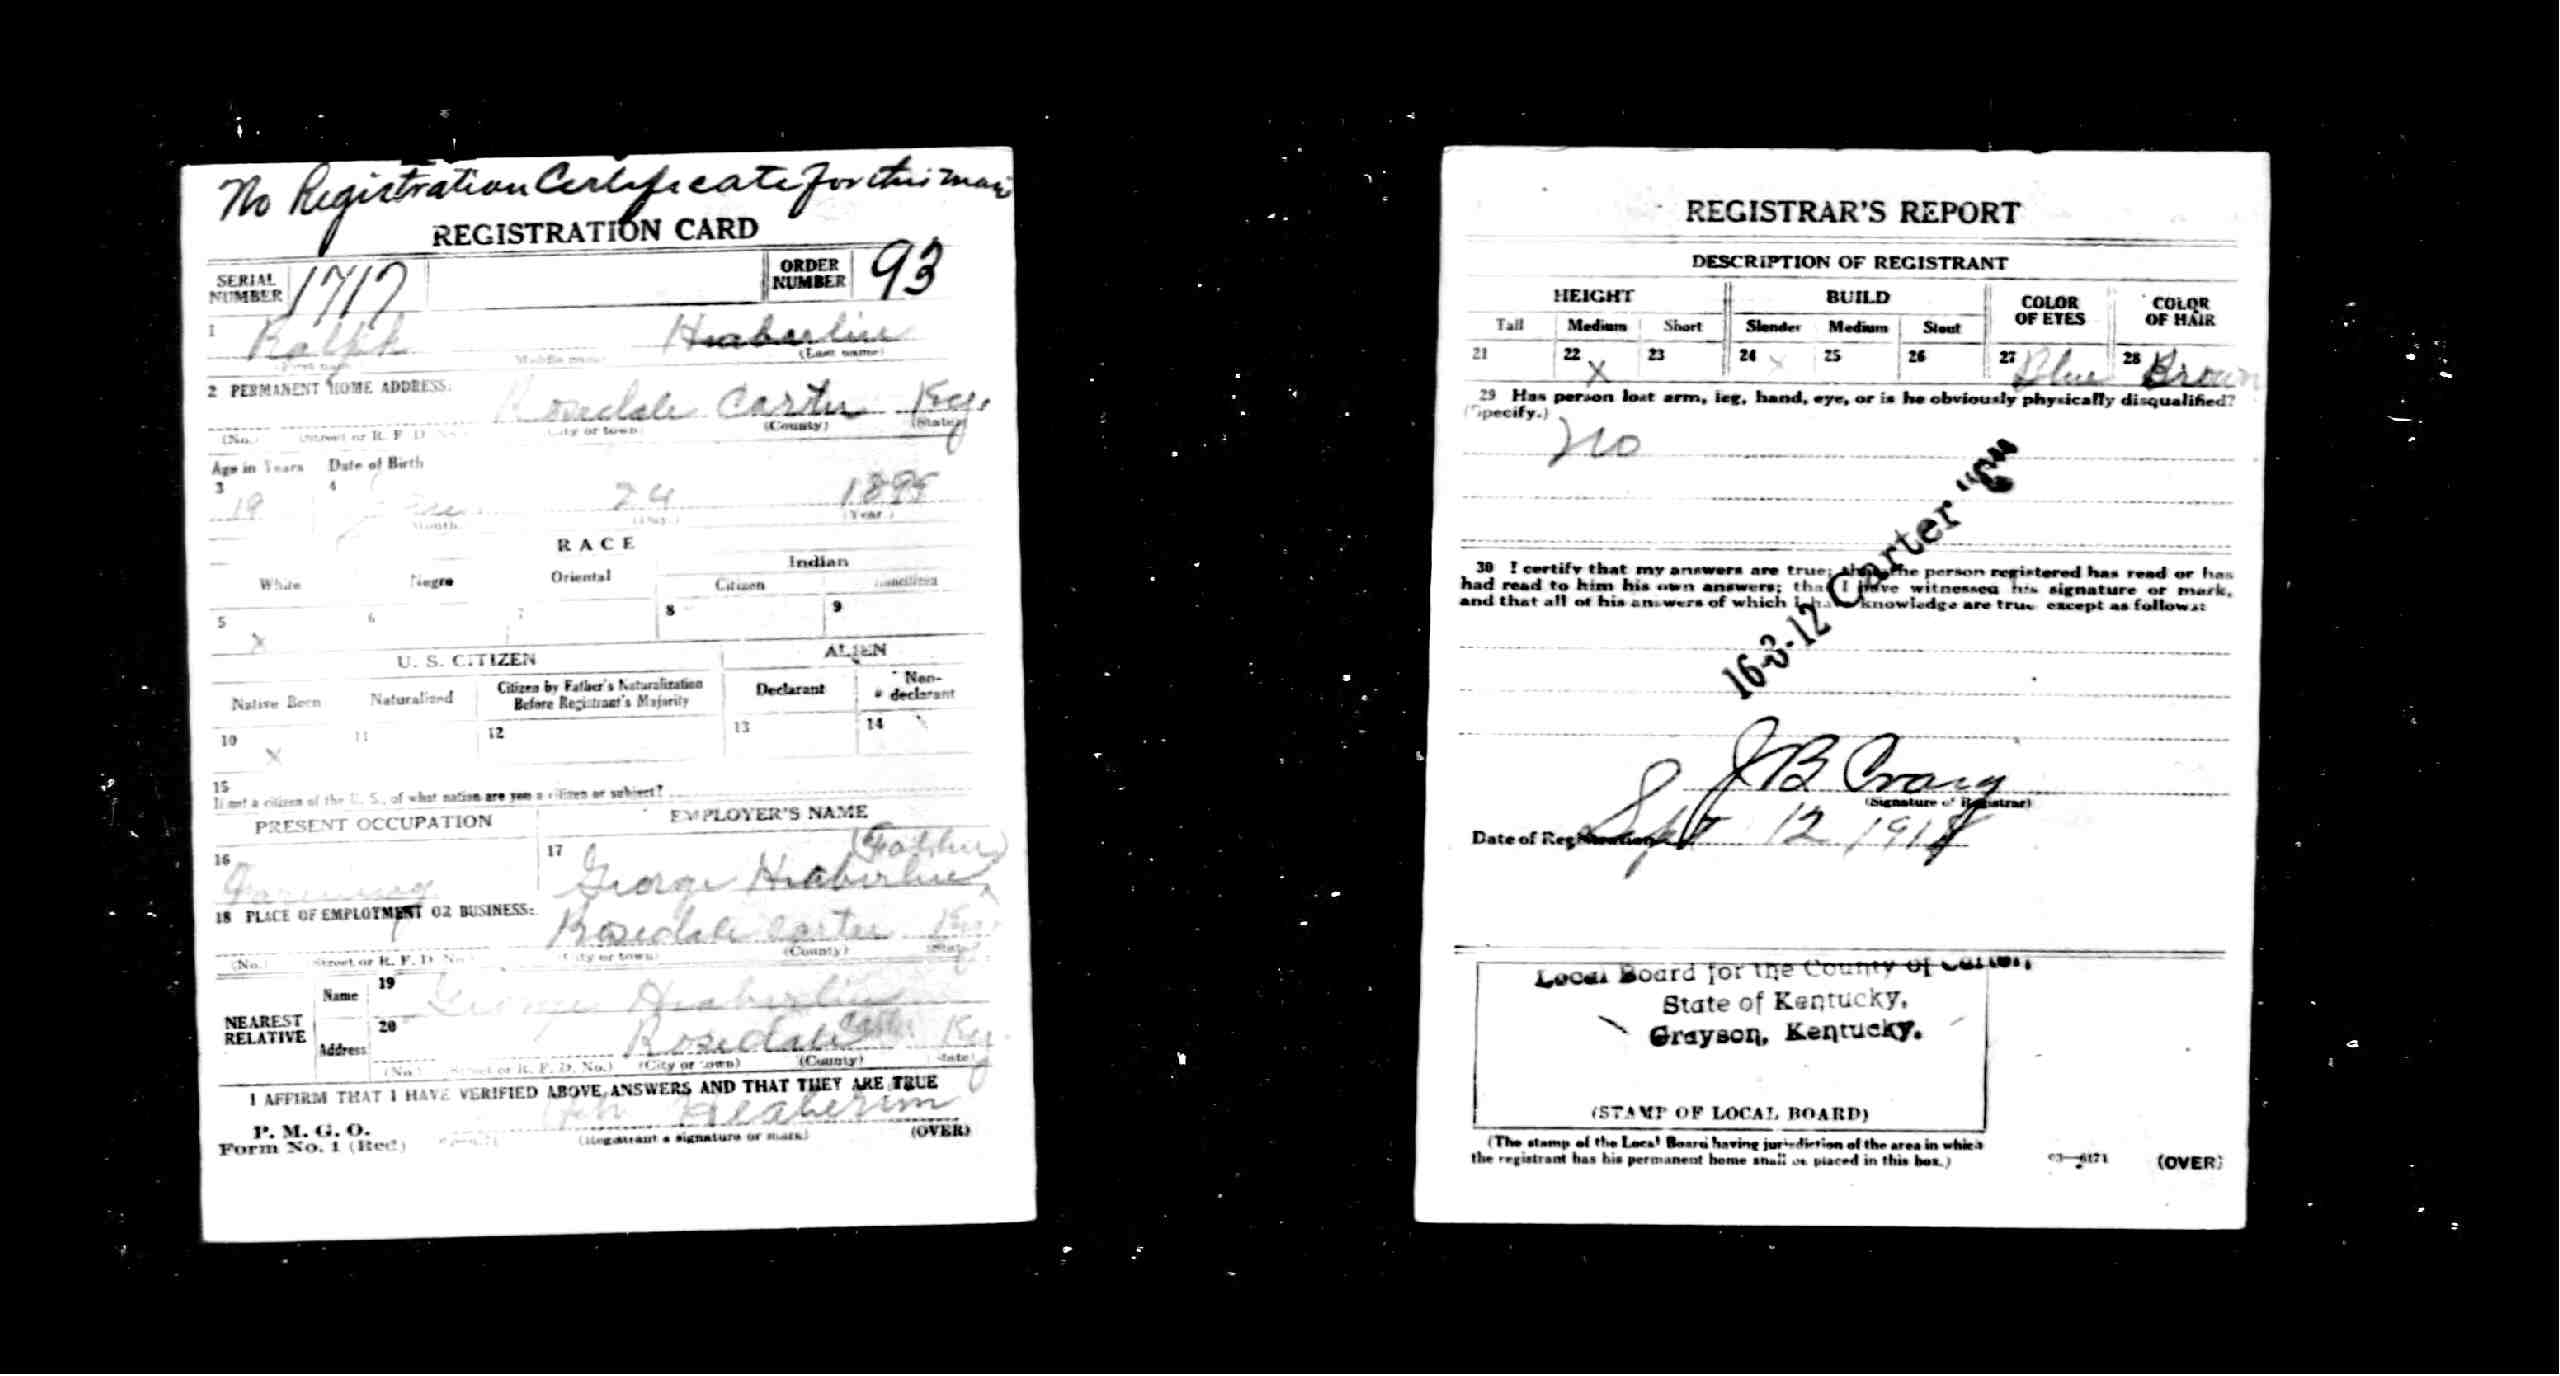 No Registration Certificate for this man
REGISTRATION CARD
SERIAL NUMBER 1717 ORDER NUMBER 93
1 Ralph Heaberlin
(First name) (Middle name) (Last name)
2 PERMANENT HOME ADDRESS:
Rosedale Carter Ky.
(No.) (Street or R. F. D. No.) (City or town) (County) (State)
Age in Years Date of Birth
3 4
19 24 1899
Month. (Day.) (Year.)
RACE
White Negro Oriental Indian
Citizen Noncitizen
5 6 7 8 9
X
U. S. CITIZEN ALIEN
Native Born Naturalized Citizen by Father's Naturalization Before Registrant's Majority Declarant Non-declarant
10 11 12 13 14
X
15
If not a citizen of the U. S., of what nation are you a citizen or subject?
PRESENT OCCUPATION EMPLOYER'S NAME
16 17 (Father)
Farming George Heaberlin
18 PLACE OF EMPLOYMENT OR BUSINESS:
Rosedale Carter Ky.
(No.) (Street or R. F. D. No.) (City or town) (County) (State)
NEAREST RELATIVE
Name 19 George Heaberlin
Address 20 Rosedale Carter Ky.
(No.) (Street or R. F. D. No.) (City or town) (County) (State)
I AFFIRM THAT I HAVE VERIFIED ABOVE ANSWERS AND THAT THEY ARE TRUE
P. M. G. O.
Form No. 1 (Red) Heaberlin
(Registrant's signature or mark) (OVER)
REGISTRAR'S REPORT
DESCRIPTION OF REGISTRANT
HEIGHT BUILD COLOR OF EYES COLOR OF HAIR
Tall Medium Short Slender Medium Stout
21 22 X 23 24 X 25 26 27 Blue 28 Brown
29 Has person lost arm, leg, hand, eye, or is he obviously physically disqualified?
(Specify.)
No
16-3-12 Carter "C"
30 I certify that my answers are true; that the person registered has read or has
had read to him his own answers; that I have witnessed his signature or mark,
and that all of his answers of which I have knowledge are true except as follows:
J B Craig
(Signature of Registrar)
Date of Registration Sept 12 1918
Local Board for the County of Carter,
State of Kentucky,
Grayson, Kentucky.
(STAMP OF LOCAL BOARD)
(The stamp of the Local Board having jurisdiction of the area in which
the registrant has his permanent home shall be placed in this box.)
03—6171 (OVER)